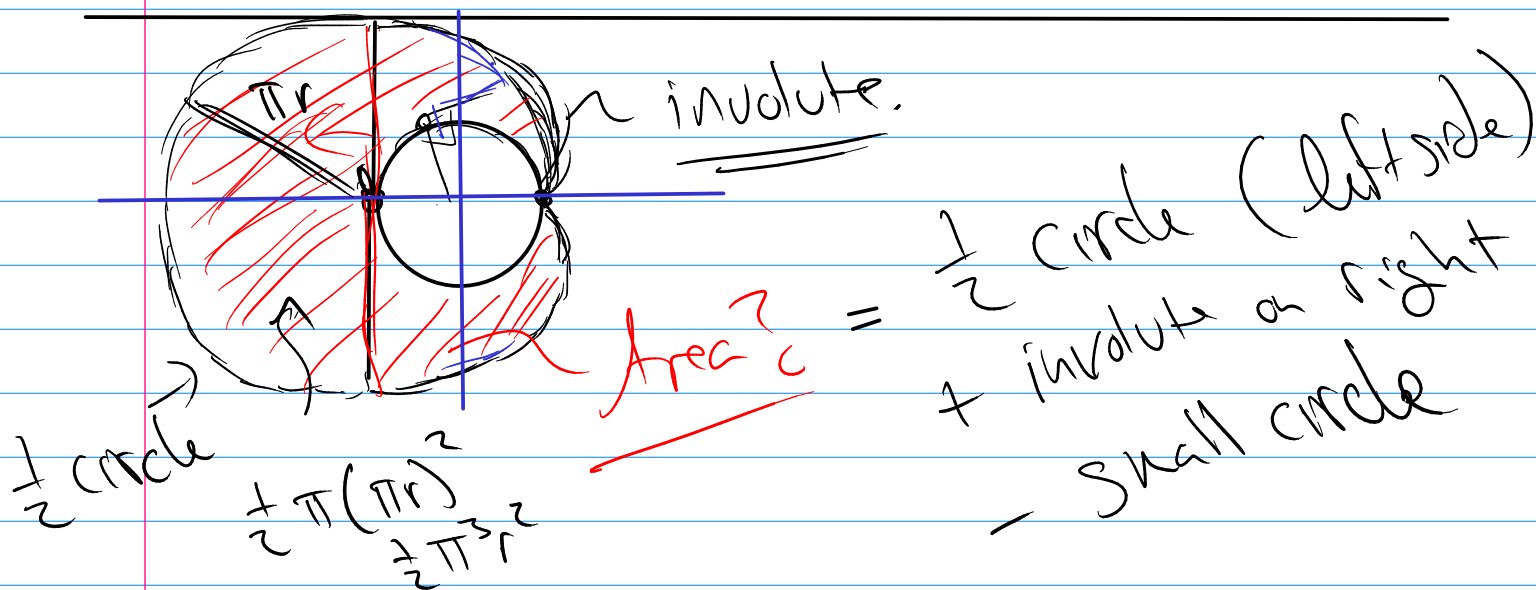 πr
involute.
Area?
= ½ circle (left side)
+ involute on right
- small circle
½ circle
½ π(πr)²
½ π³r²